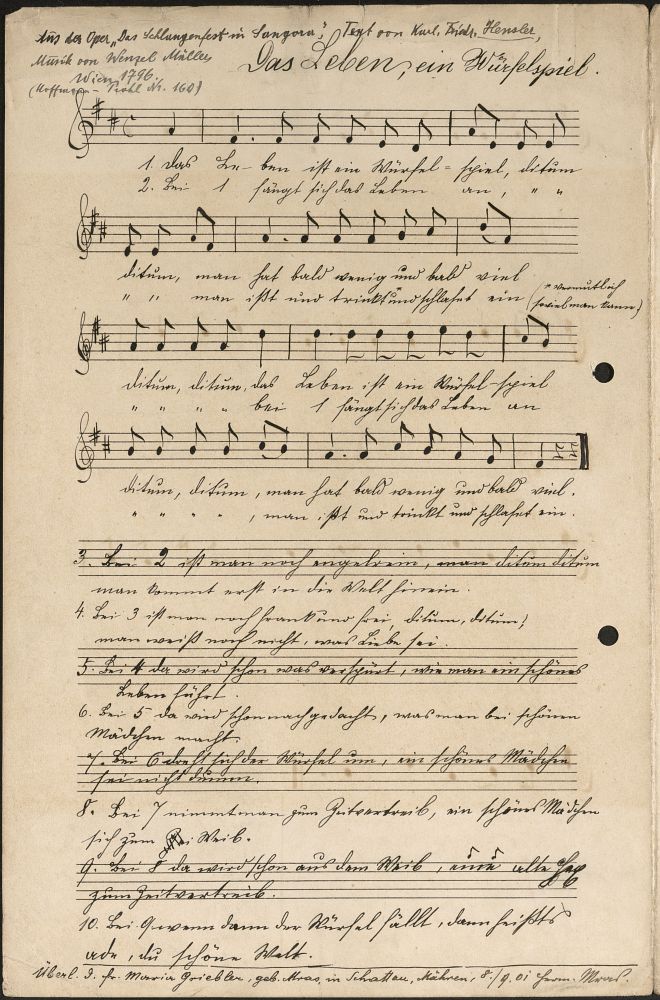 Aus der Oper „Das Schlangenfest in Sangora“, Text von Karl, Friedr. Hensler,
Musik von Wenzel Müller
Wien 1796.
(Hoffmann – Prahl Nr. 160)
Das Leben, ein Würfelspiel.
1. Das Le-ben ist ein Würfel=spiel, ditum
2. Bei 1 fängt sich das Leben an, " "
ditum, man hat bald wenig und bald viel
" " man ißt und trinkt und schlafet ein (vermutlich
soviel man kann)
ditum, ditum, das Leben ist ein Würfel-spiel
" " " " bei 1 fängt sich das Leben an
ditum, ditum, man hat bald wenig und bald viel.
" " " ", man ißt und trinkt und schlafet ein.
3. Bei 2 ist man noch engelrein, man ditum ditum
man kommt erst in die Welt hinein.
4. Bei 3 ist man noch frank und frei, ditum, ditum,
man weiß noch nicht, was Liebe sei.
5. Bei 4 da wird schon was verspürt, wie man ein schönes
Leben führt.
6. Bei 5 da wird schon nachgedacht, was man bei schönen
Mädchen macht.
7. Bei 6 dreht sich der Würfel um, ein schönes Mädchen
sei nicht dumm.
8. Bei 7 nimmt man zum Zeitvertreib, ein schönes Mädchen
sich zum Weib.
9. Bei 8 da wird schon aus dem Weib, eine alte Hex
zum Zeitvertreib.
10. Bei 9 wenn dann der Würfel fällt, dann heißts
ade, du schöne Welt.
Überl. d. Fr. Maria Griebler, geb. Mras, in Schattau, Mähren, 8./9. 01 Herm. Mras.